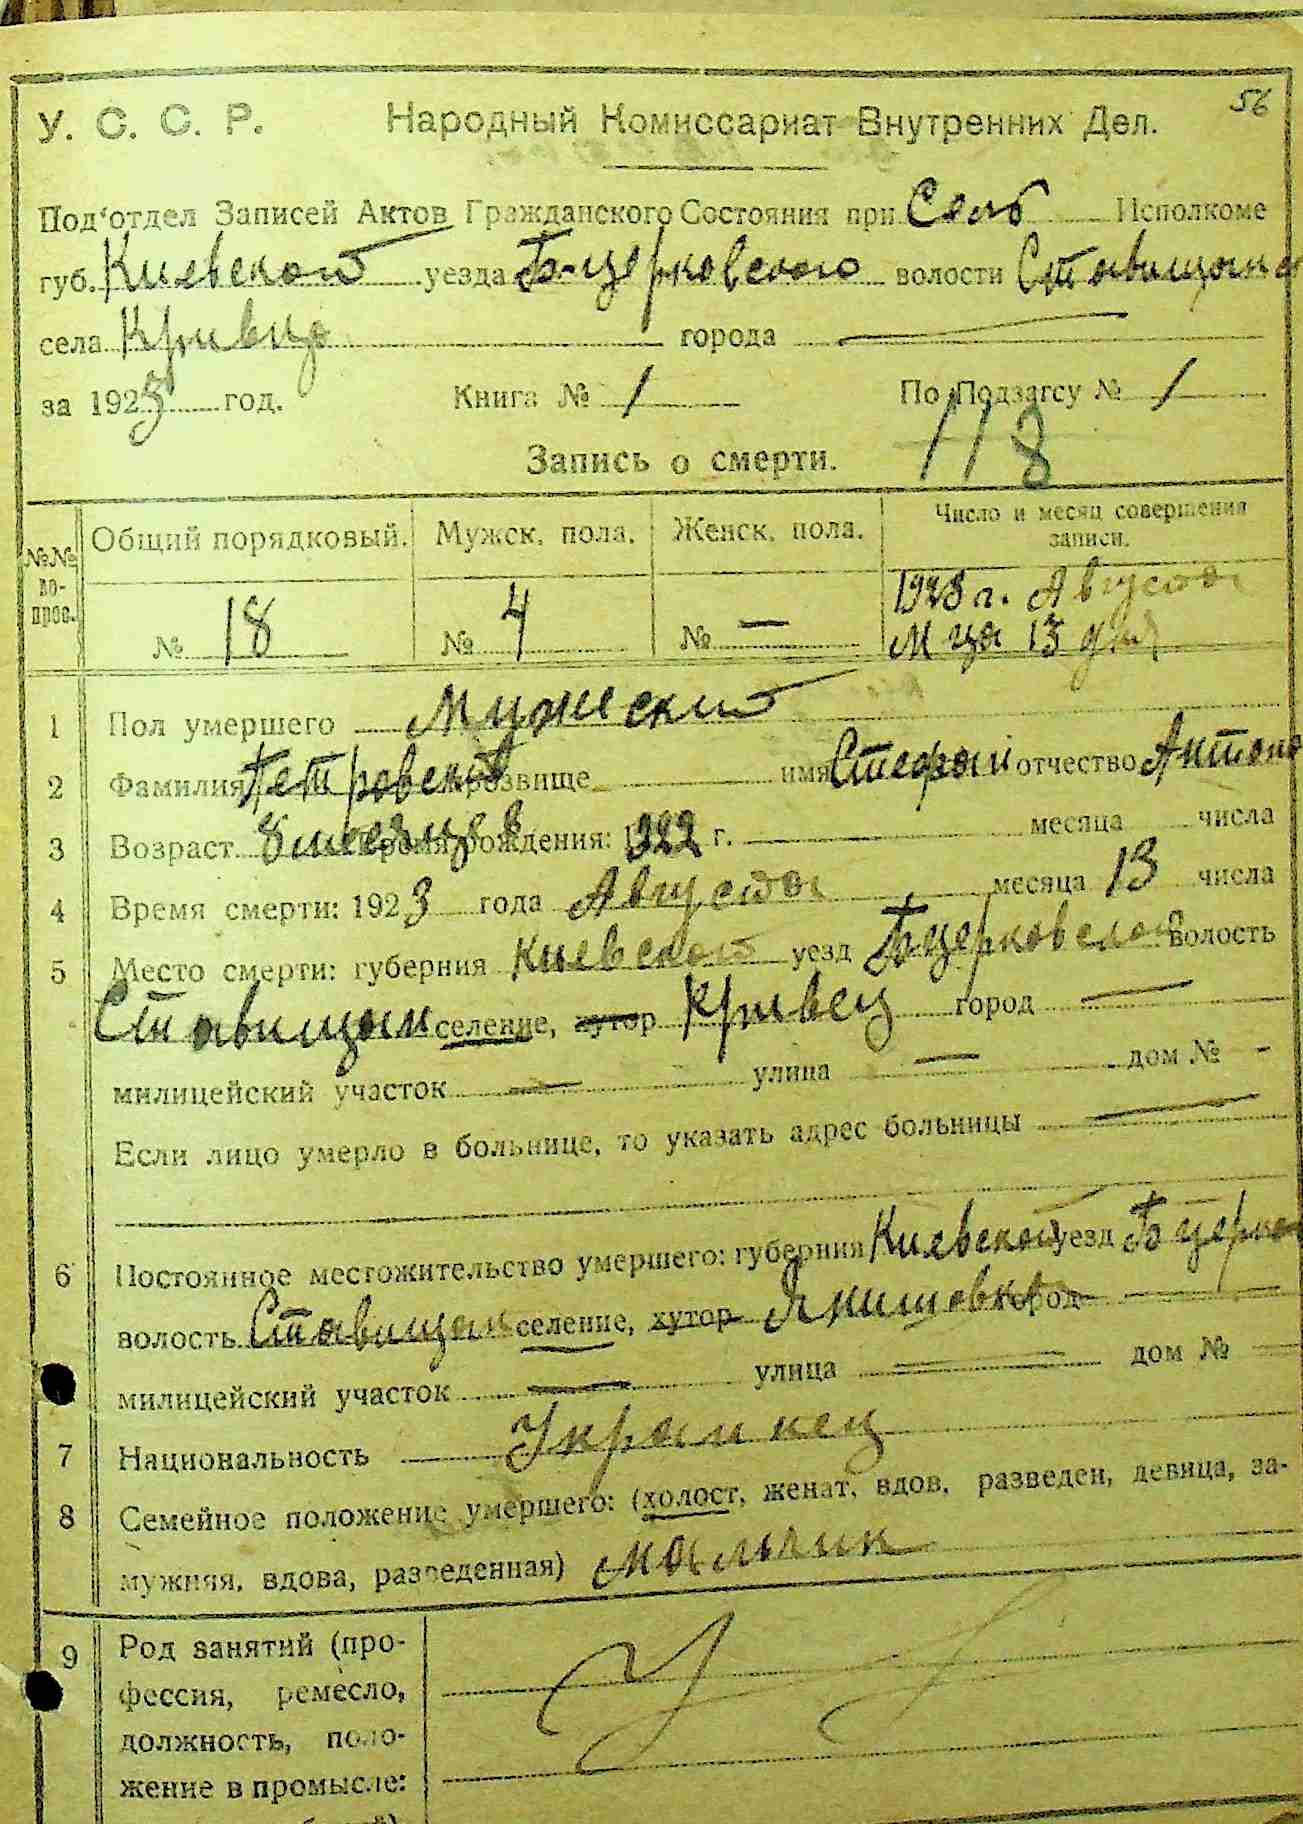 56
У. С. С. Р. Народный Комиссариат Внутренних Дел.
Под'отдел Записей Актов Гражданского Состояния при Сель Исполкоме
губ. Киевской уезда Б-церковского волости Ставищанс
села Кривца города —
за 1923 год. Книга № 1 По Подзагсу № 1
118
Запись о смерти.
№№ вопрос. Общий порядковый. Мужск. пола. Женск. пола. Число и месяц совершения записи.
№ 18 № 4 № — 1923 г. Августа
М ца 13 дня
1 Пол умершего Мужеский
2 Фамилия Петровский прозвище имя Стефан отчество Антоно
3 Возраст 8 месяцев Время рождения: 1922 г. месяца числа
4 Время смерти: 1923 года Августа месяца 13 числа
5 Место смерти: губерния Киевской уезд Бцерковской волость
Ставищан селение, хутор Кривец город —
милицейский участок — улица — дом № -
Если лицо умерло в больнице, то указать адрес больницы —
6 Постоянное местожительство умершего: губерния Киевской уезд Бцерков
волость Ставищан селение, хутор Янишовка город —
милицейский участок — улица — дом № —
7 Национальность Украинец
8 Семейное положение умершего: (холост, женат, вдов, разведен, девица, за-
мужняя, вдова, разведенная) мальчик
9 Род занятий (про-
фессия, ремесло,
должность, поло-
жение в промысле: